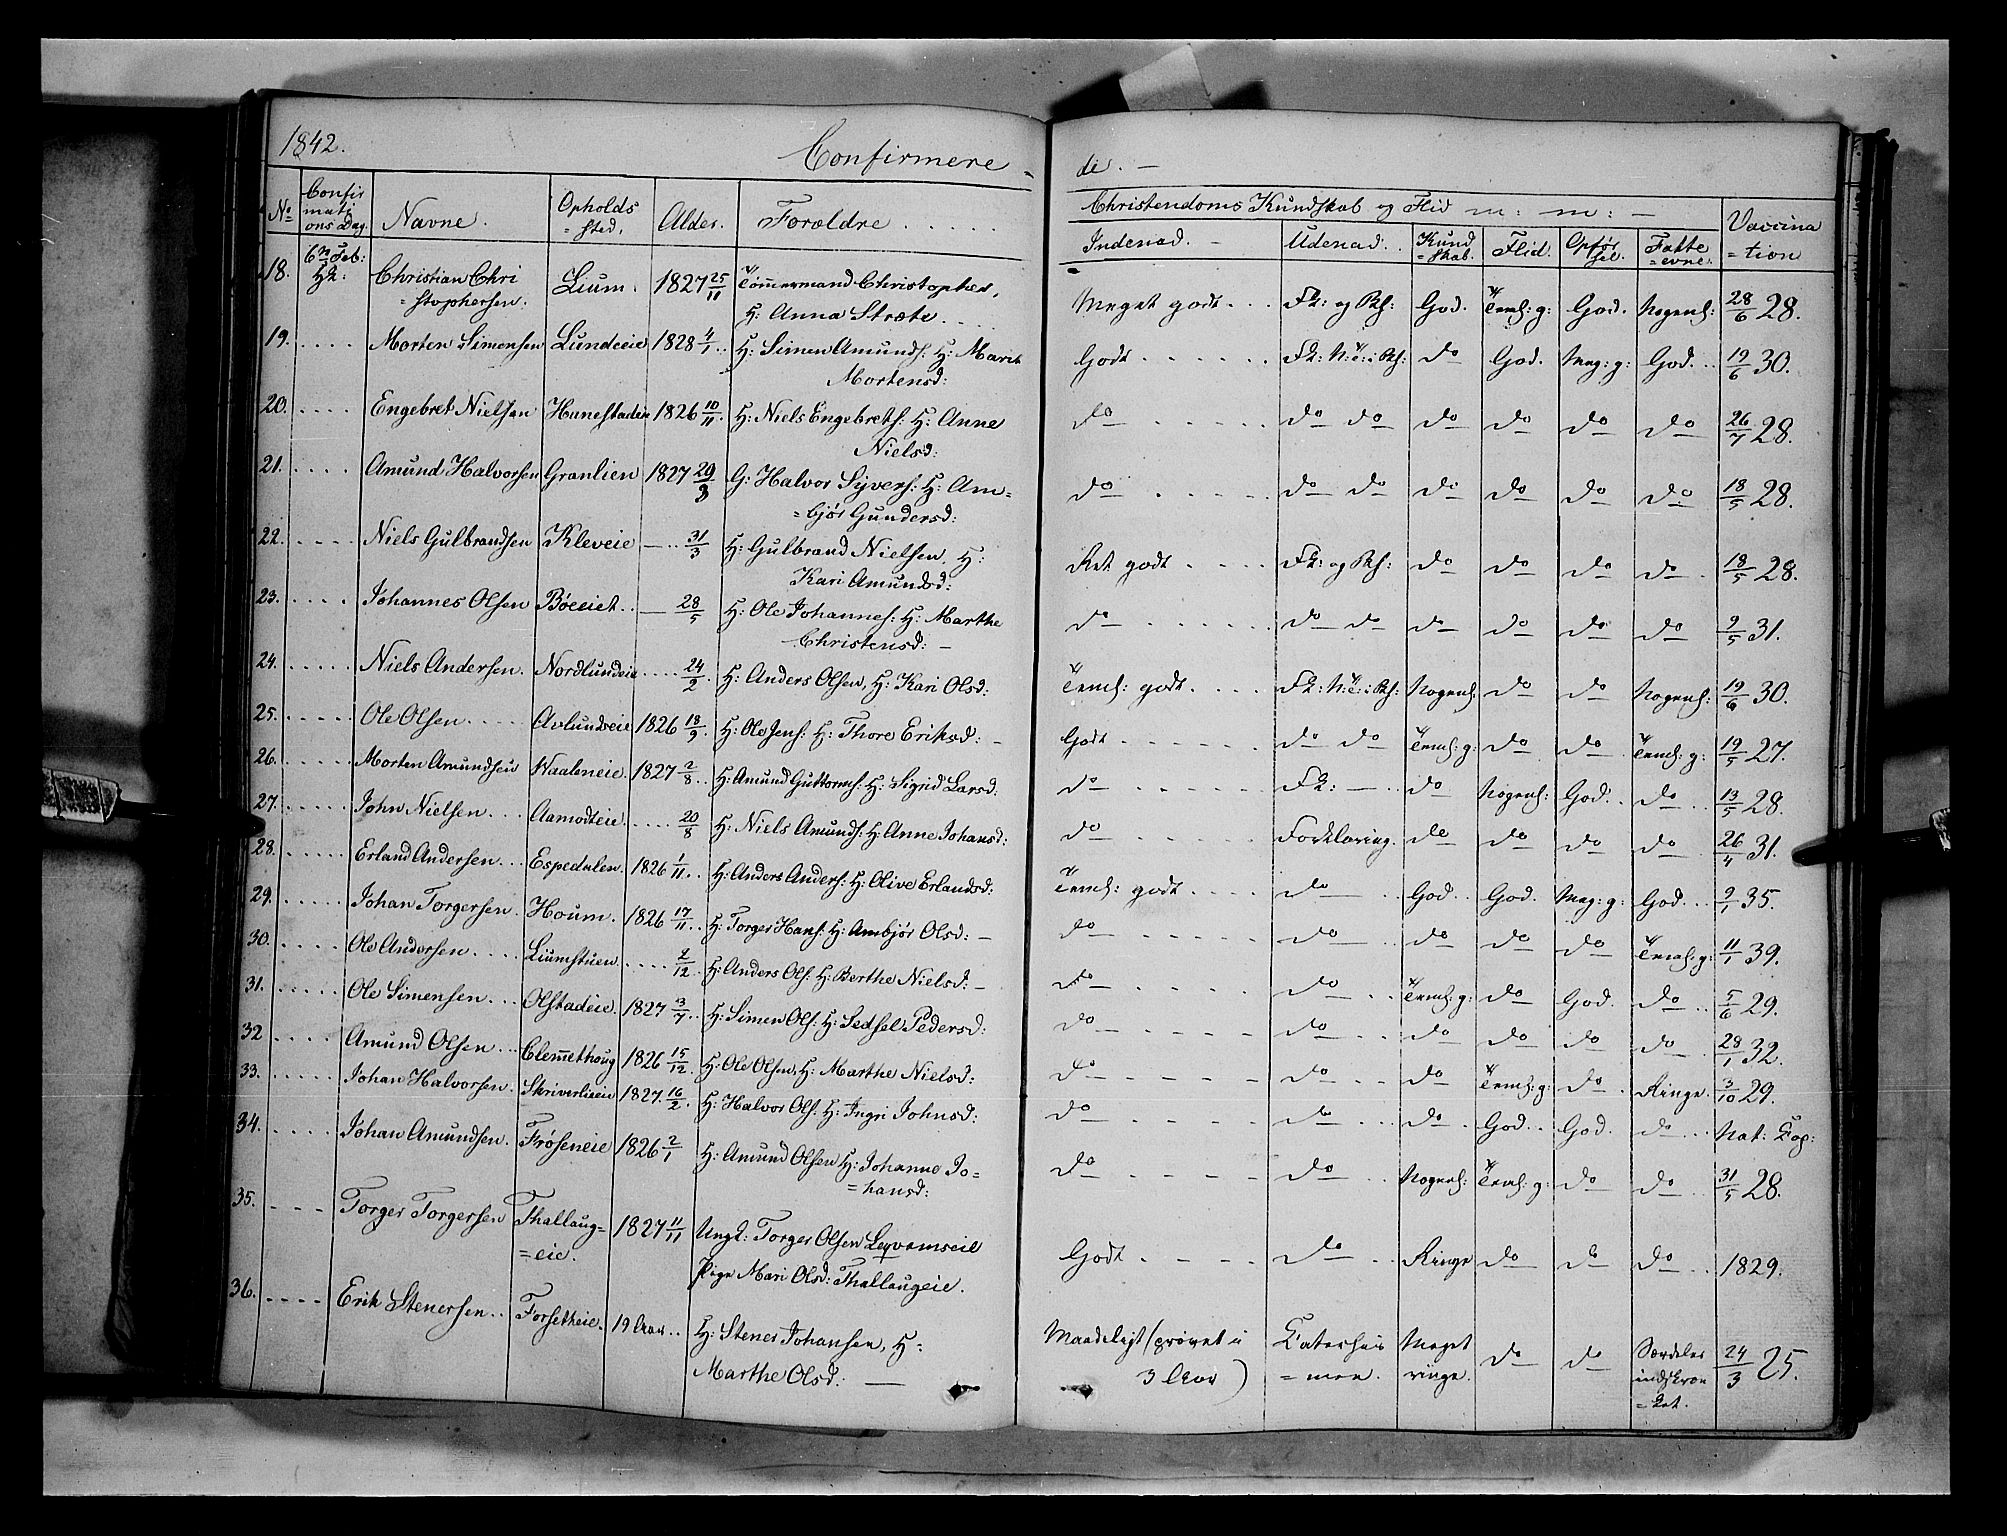 1842.
Confirmere-
de. —
No
Confir
mati
ons Dag.
Navne.
Opholds
=sted.
Alder.
Forældre . . . . .
Christendoms Kundskab og Flid m: m: —
Indenad. —
Udenad.
Kund
=skab.
Flid.
Opför
sel.
Fatte
=evne.
Vaccina
=tion
18. 6te Feb: Christian Chri Lium. 1827 25/11 Tömmermand Christopher,
=stophersen. H: Anna Stræte . . . .
Meget godt . . . Fk: og Bh: God. Teml: g: God. Nogenl: 28/6 28.
19. . . . . Morten Simensen Lundeeie 1828 4/1 . . H: Simen Amunds: H: Marit
Mortensd:
Godt . . . . . . do God. Meg: g: God. . . 19/6 30.
20. . . . . Engebret Nielsen Hunestadeie 1826 10/11. H: Niels Engebrets: H: Anne
Nielsd:
do . . . . . do do do do do do 26/7 28.
21. . . . . Amund Halvorsen Granlien 1827 29/3 G: Halvor Syvers: H: Am=
=björ Gundersd:
do . . . . . do do do do do do 18/5 28.
22. . . . . Niels Gulbrandsen Kleveie — . . 31/3 H: Gulbrand Nielsen, H:
Kari Amundsd:
Ret godt . . . . Fk: og Bh: do do do do . 18/5 28.
23. . . . . Johannes Olsen Böeeiet . . — 28/5 H: Ole Johannes: H: Marthe
Christensd: —
do . . . . . . do do do do do do 9/5 31.
24. . . . . . Niels Andersen. Nordlundeie . . . . . 24/2. H: Anders Olsen, H: Kari Olsd:
Teml: godt. . . . . Nogenl: do do Nogenl: 19/6 30.
25. . . . . . Ole Olsen . . . . . Avlundeie 1826 18/9. H: Ole Jens: H: Thore Eriksd: —
Godt . . . . . do do Teml: g: do do . Teml: g: 19/5 27.
26. . . . . . Morten Amundsen Waaleneie. 1827 2/8 . . H: Amund Guttorms: H: Sigrid Larsd:
do . . . . . Fk: — . . do Nogenl: God. . do . . 13/5 28.
27. . . . . . John Nielsen . . . Aamodteie . . . . 20/8 H: Niels Amunds: H: Anne Johansd:
do . . . . . Forklaring. do do do do . . 26/4 31.
28. . . . . . Erland Andersen . . . Espedalen. 1826 1/11 . . H: Anders Anders: H: Olive Erlandsd:
Teml: godt . . . . do . . . God. . God. Meg: g: God . . . 2/1 35.
29. . . . . . Johan Torgersen. Houm. 1826 17/11 . . H: Torger Hans: H: Ambjör Olsd: —
do . . . . . do . . do do do Teml: g: 11/1 39.
30. . . . . Ole Andersen . . . . Liumstuen. . . . . 2/12. H: Anders Ols: H: Berthe Nielsd: —
do . . . . . do . . Teml: g: do God. do . . 5/6 29.
31. . . . . . Ole Simensen . . . Olstadeie. 1827 3/7 . . H: Simen Ols: H: Sedsel Pedersd:
do . . . . . do . . do do do do . . 28/1 32.
32 . . . . Amund Olsen . . . Clemethoug 1826 15/12. H: Ole Olsen, H: Marthe Nielsd:
do . . . . . do . . do Teml: g: do . Ringe. 3/10 29.
33. . . . . . Johan Halvorsen. Skriverlieeie 1827. 16/2. H: Halvor Ols: H: Ingri Johnsd:
do . . . . . do . . do . God. . God. do . . . Nat: Cop:
34. . . . . Johan Amundsen. Fröseneie 1826 2/1 H: Amund Olsen H: Johanne Jo=
=hansd:
do . . . . . do . . Nogenl: Teml: g: do do . . 31/5 28.
35. . . . Torger Torgersen Thallaug= 1827 11/11 Ungk: Torger Olsen
=eie. Pige Mari Olsd: Thallaugeie.
Godt . . . . do . . Ringe do do do . . 1829.
36. . . . . Erik Stenersen . . Forsetheie. 19 Aar . . H: Stener Johansen, H:
Marthe Olsd: —
Maadeligt (prövet i Catechis Meget do do Særdeles 24/3 25.
3 Aar) =men. ringe. indskræn
=ket.